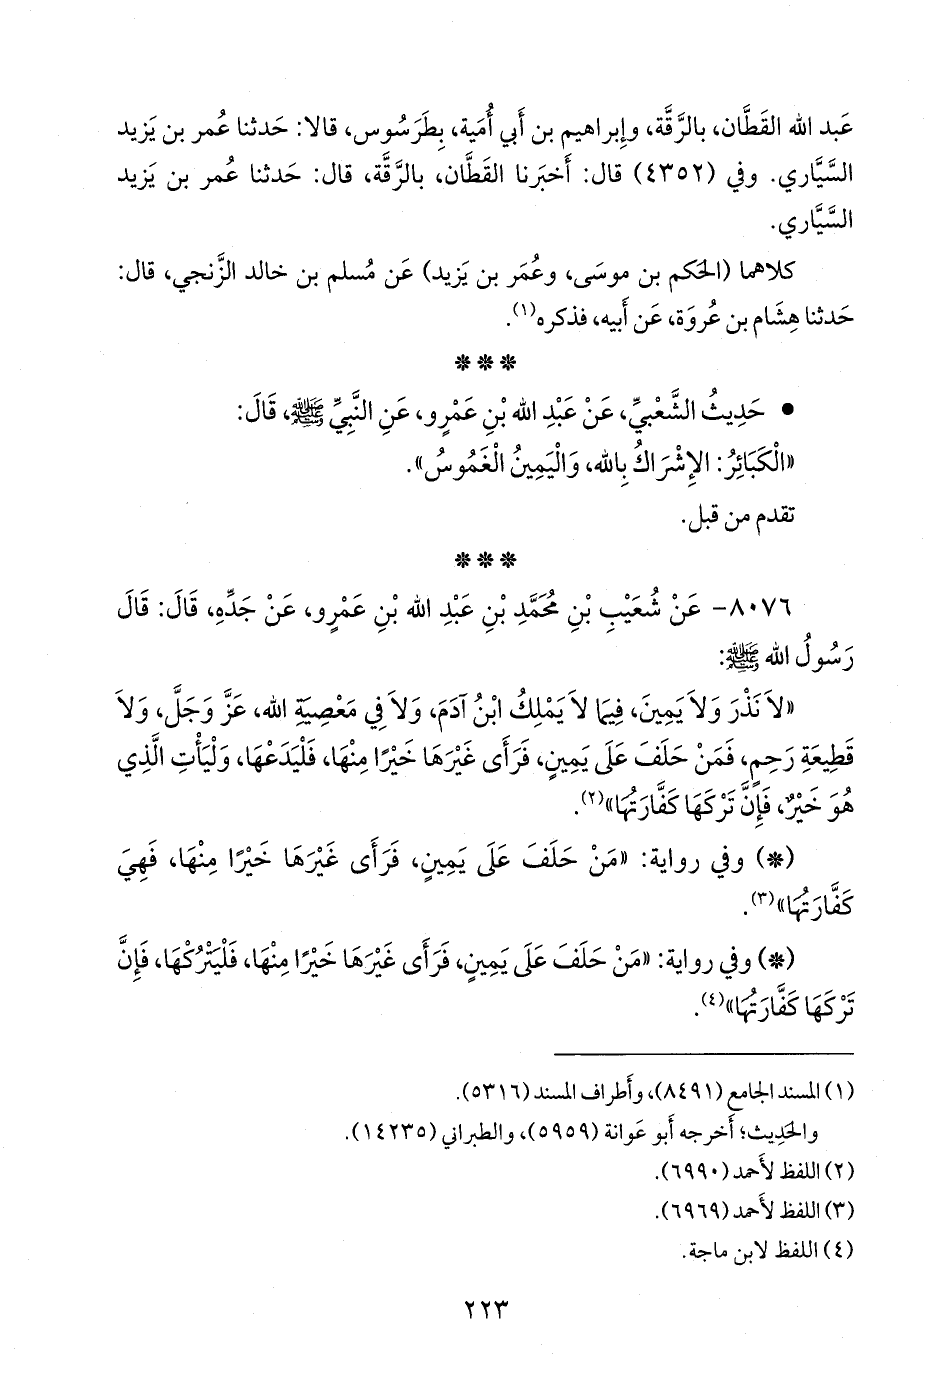 عَبد الله القَطَّان، بالرَّقَّة، وإبراهيم بن أَبي أُمَية، بِطَرَسُوس، قالا: حَدثنا عُمر بن يَزيد
السَّيَّاري. وفي (٤٣٥٢) قال: أَخبَرنا القَطَّان، بالرَّقَّة، قال: حَدثنا عُمر بن يَزيد
السَّيَّاري.
كلاهما (الحَكم بن موسَى، وعُمَر بن يَزيد) عَن مُسلم بن خالد الزَّنجي، قال:
حَدثنا هِشَام بن عُروَة، عَن أَبيه، فذكره(١).
***
• حَدِيثُ الشَّعْبيِّ، عَنْ عَبْدِ الله بْنِ عَمْرٍو، عَنِ النَّبِيِّ ﷺ، قَالَ:
«الْكَبَائِرُ: الإِشْرَاكُ بِالله، وَالْيَمِينُ الْغَمُوسُ».
تقدم من قبل.
***
٨٠٧٦- عَنْ شُعَيْبِ بْنِ مُحَمَّدِ بْنِ عَبْدِ الله بْنِ عَمْرٍو، عَنْ جَدِّهِ، قَالَ: قَالَ
رَسُولُ الله ﷺ:
«لاَ نَذْرَ وَلاَ يَمِينَ، فِيمَا لاَ يَمْلِكُ ابْنُ آدَمَ، وَلاَ فِي مَعْصِيَةِ الله، عَزَّ وَجَلَّ، وَلاَ
قَطِيعَةِ رَحِمٍ، فَمَنْ حَلَفَ عَلَى يَمِينٍ، فَرَأَى غَيْرَهَا خَيْرًا مِنْهَا، فَلْيَدَعْهَا، وَلْيَأْتِ الَّذِي
هُوَ خَيْرٌ، فَإِنَّ تَرْكَهَا كَفَّارَتُهَا»(٢).
(*) وفي رواية: «مَنْ حَلَفَ عَلَى يَمِينٍ، فَرَأَى غَيْرَهَا خَيْرًا مِنْهَا، فَهِيَ
كَفَّارَتُهَا»(٣).
(*) وفي رواية: «مَنْ حَلَفَ عَلَى يَمِينٍ، فَرَأَى غَيْرَهَا خَيْرًا مِنْهَا، فَلْيَتْرُكْهَا، فَإِنَّ
تَرْكَهَا كَفَّارَتُهَا»(٤).
(١) المسند الجامع (٨٤٩١)، وأَطراف المسند (٥٣١٦).
والحَدِيث؛ أَخرجه أَبو عَوانة (٥٩٥٩)، والطبراني (١٤٢٣٥).
(٢) اللفظ لأَحمد (٦٩٩٠).
(٣) اللفظ لأَحمد (٦٩٦٩).
(٤) اللفظ لابن ماجة.
٢٢٣